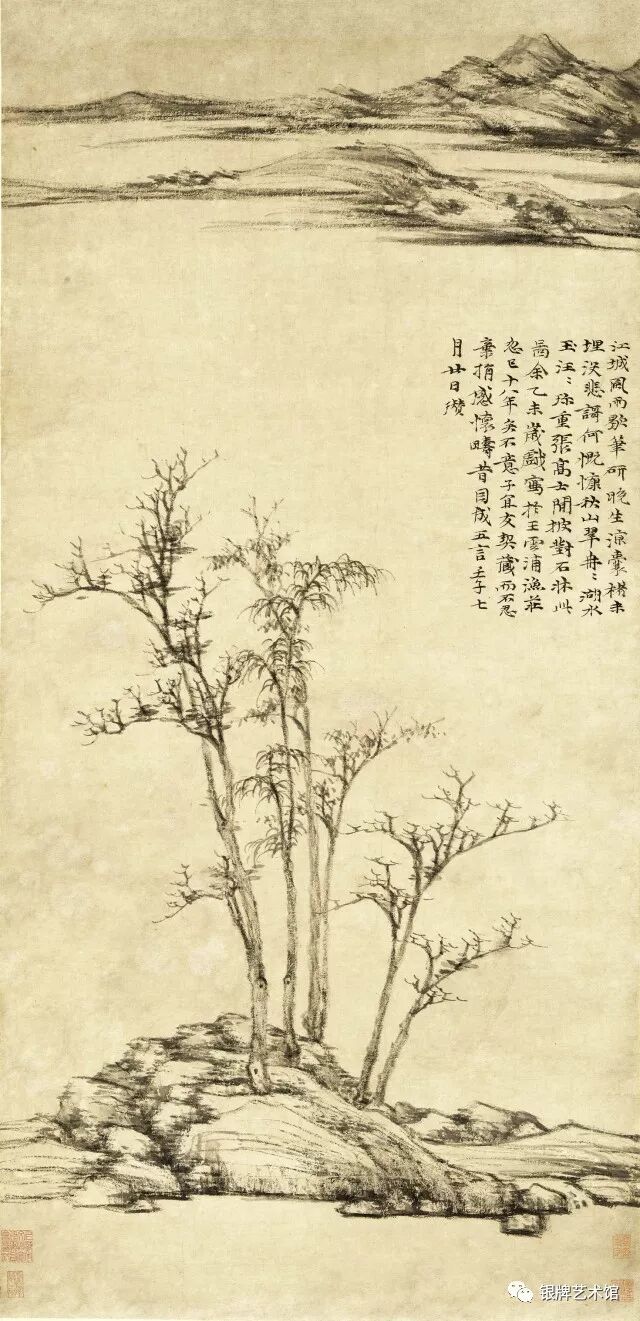 江城風雨歇筆研晚生涼囊楮未
埋没悲謌何慨慷秋山翠冉〻湖水
玉汪〻珎重張高士閒披對石牀此
啚余乙未歲戲寫於王雲浦漁莊
忽已十八年矣不意子宜友契藏而不忍
棄捐感懷疇昔因成五言壬子七
月廿日瓚
银牌艺术馆